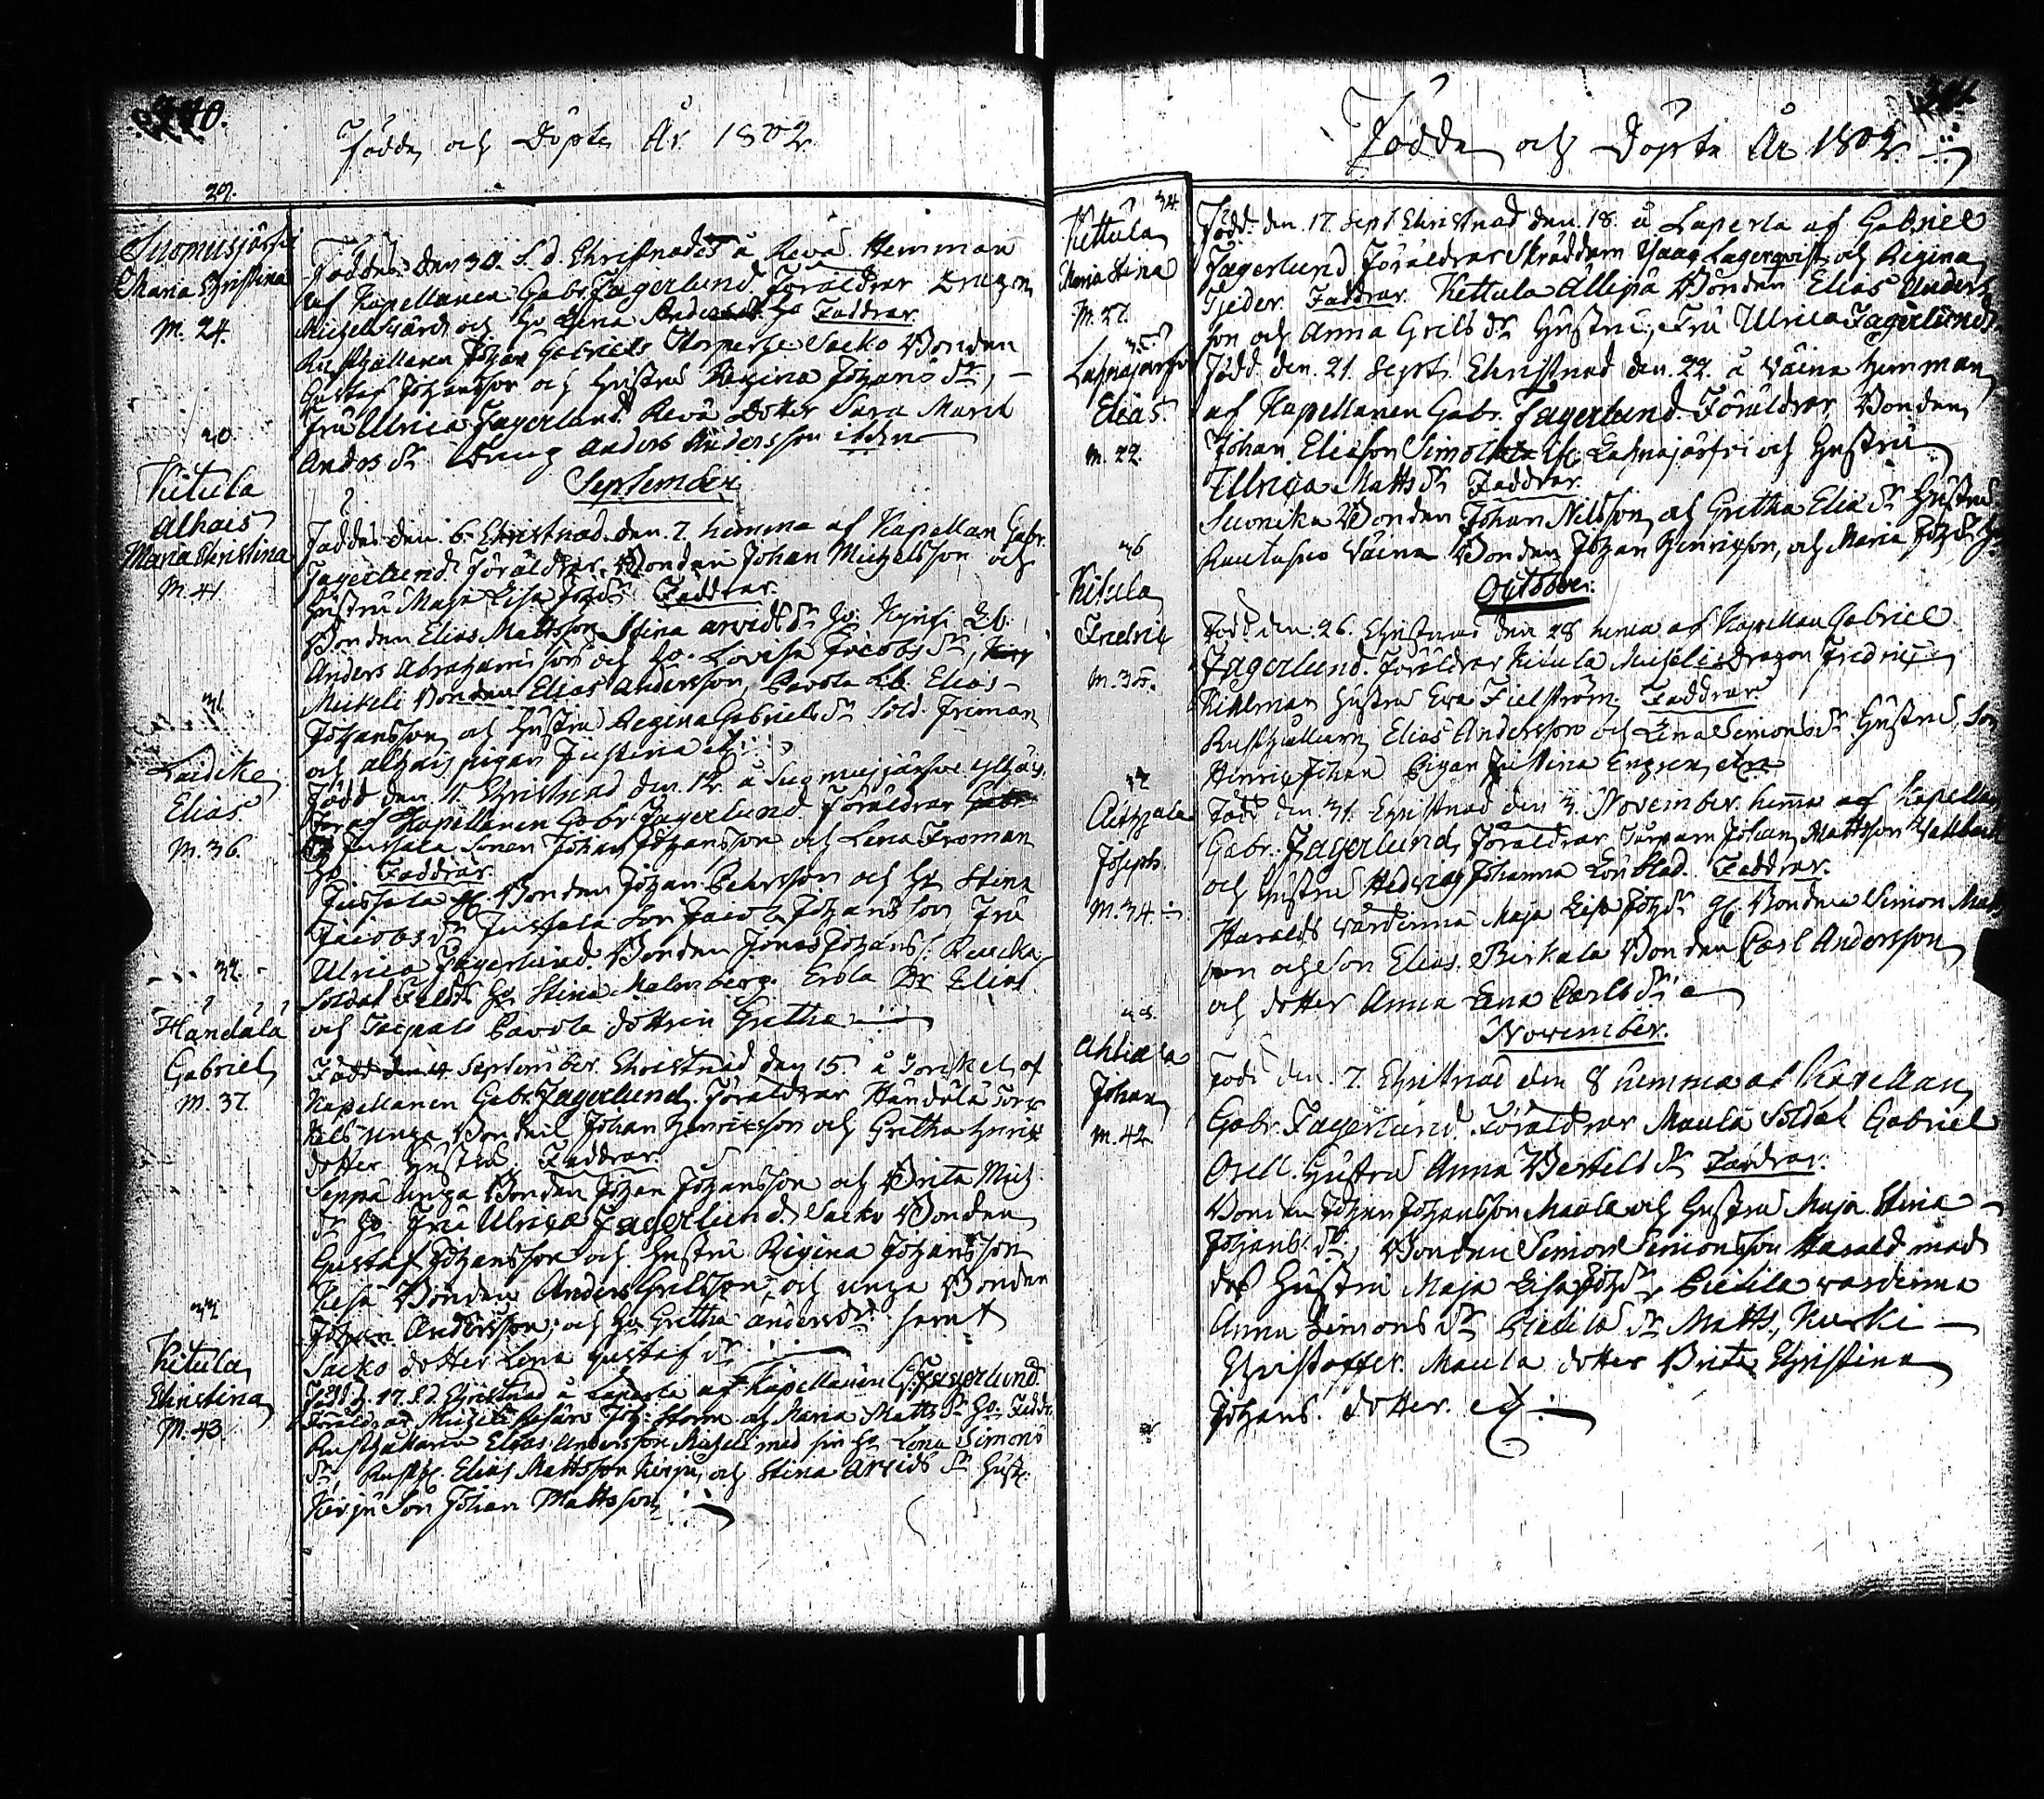 Födde och Döpte År 1802
29.
Suomusjärfvi
Maria Christina
M. 24.
Föddes den 30. S. d. Christnades å Revä Hemman
af Kapellanen Gabr. Fagerlund. Föräldrar Dragon
och Hu Lena Faddrar.
Rusthållaren Johan Gabriels Sacko Bonden
Gustaf Johansson och Hustru Regina Johans dr,
Fru Ulrica Fagerlund. Revä Dotter Sara Maria
Anders dr Dreng Anders Andersson ibidem
30.
Kitula
Alhais
Maria Christina
M. 41.
September
Föddes den 6. Christnad den 7. hemma af Kapellan Gabr.
Fagerlund. Föräldrar Bonden Johan Michelsson och
Hustru Maja Lisa Joh. dr Faddrar.
Bonden Elias Mattsson Stina Arvids dr Hu.
Anders Abrahamsson och Hu. Lovisa Jacobs dr,
Mickeli Bonden Elias Andersson, Pavola Elias
Johansson och Hustru Regina Gabriels dr Sold. Froman
och Alhais pigan Justina etc.
31.
Laidike
Elias
M. 36.
Född den 11. Christnad den 12. å Suomusjärvi
af Kapellanen Gabr. Fagerlund. Föräldrar
Jussala Sonen Johan Johansson och Lena Froman
Hu Faddrar.
Jussala Bonden Johan Pehrsson och Hu Stina
Jacobs dr Jussala Son Jacob Johansson Fru
Ulrica Fagerlund. Bonden Jonas Johans S.
Soldat Hu Stina Malmberg. Erola Elias
och Pavola dottern Gretha
32.
Händälä
Gabriel
M. 37.
Född den 14 September. Christnad den 15. å Torckel af
Kapellanen Gabr. Fagerlund. Föräldrar Händälä Torc
kels unga Bonden Johan Henricsson och Gretha Henric
dotter Hustru Faddrar
Seppä unga Bonden Johan Johansson och Brita Mich.
dr Hu Fru Ulrica Fagerlund. Sacko Bonden
Gustaf Johansson och Hustru Regina Johansson
Bonden Anders Grelsson, och unga Bonden
Johan Andersson, och Hu Gretha Anders dr samt
Sacko dotter Lena Gustaf dr
33
Kitula
Christina
M. 43.
Född d. 17. S. d. Christnad å Laperla af Kapellanen G. Fagerlund.
Föräldrar Joh. Storm och Maria Matts dr Hu. Faddr.
Rusthållaren Elias Andersson Mickeli med sin Hu Lena Simons
dr, Rusth. Elias Mattsson Kirju, och Stina Arvids dr Hust.
Kirju Son Johan Mattsson
Födde och Döpte År 1802
34.
Kettula
Maria Stina
M. 27.
Född den 17 Sept Christnad den 18. å Laperla af Gabriel
Fagerlund Föräldrar Skräddarn Isaac Lagerqvist och Regina
Tjeder. Faddrar. Kettula Ällipä Bonden Elias Anders
son och Anna Grels dr Hustru, Fru Ulrica Fagerlund
35.
Lahnajärfvi
Elias
M. 22.
Född den 21. Sept. Christnad den 22. å Väinä Hemman
af Kapellanen Gabr. Fagerlund. Föräldrar Bonden
Johan Eliasson Simola Lahnajärfvi och Hustru
Ulrica Matts dr Faddrar.
Bonden Johan Nilsson och Gretha Elia dr Hustru
Väinä Bonden Johan Henricsson, och Maria Joh. dr Hu
October.
36
Kitula
Fredric
M. 35.
Född den 26. Christnad den 28 hema af Kapellan Gabriel
Fagerlund. Föräldrar Kitula Mickeli dragon Fredric
Hustru Eva Fielström Faddrar
Rusthållarn Elias Andersson och Lena Simons dr Hustru Son
Henric Johan Pigan Justina Engren etc
37
Joseph.
M. 34
Född den 31. Christnad den 3. November. hema af Kapellan
Gabr. Fagerlund, Föräldrar Torparn Johan Mattsson
och Hustru Hedvig Johanna Lönblad. Faddrar.
Haralds Värdinna Maja Lisa Joh dr Bonden Simon
son och Son Elias. Pirkala Bonden Carl Andersson
och dotter Anna Lena Carls dr
November.
Johan
M. 42
Född den 7. Christnad den 8 hemma af Kapellan
Gabr. Fagerlund. Föräldrar Maula Soldat Gabriel
Orell. Hustru Anna Bertels dr Faddrar.
Bonden Johan Johansson Maula och Hustru Maja Stina
Johans dr, Bonden Simon Simonsson Harald med
des Hustru Maja Lisa Joh dr, värdinna
Anna Simons dr Matts, Kurki
Christoffer. Maula dotter Brita Christina
Johans. dotter. etc